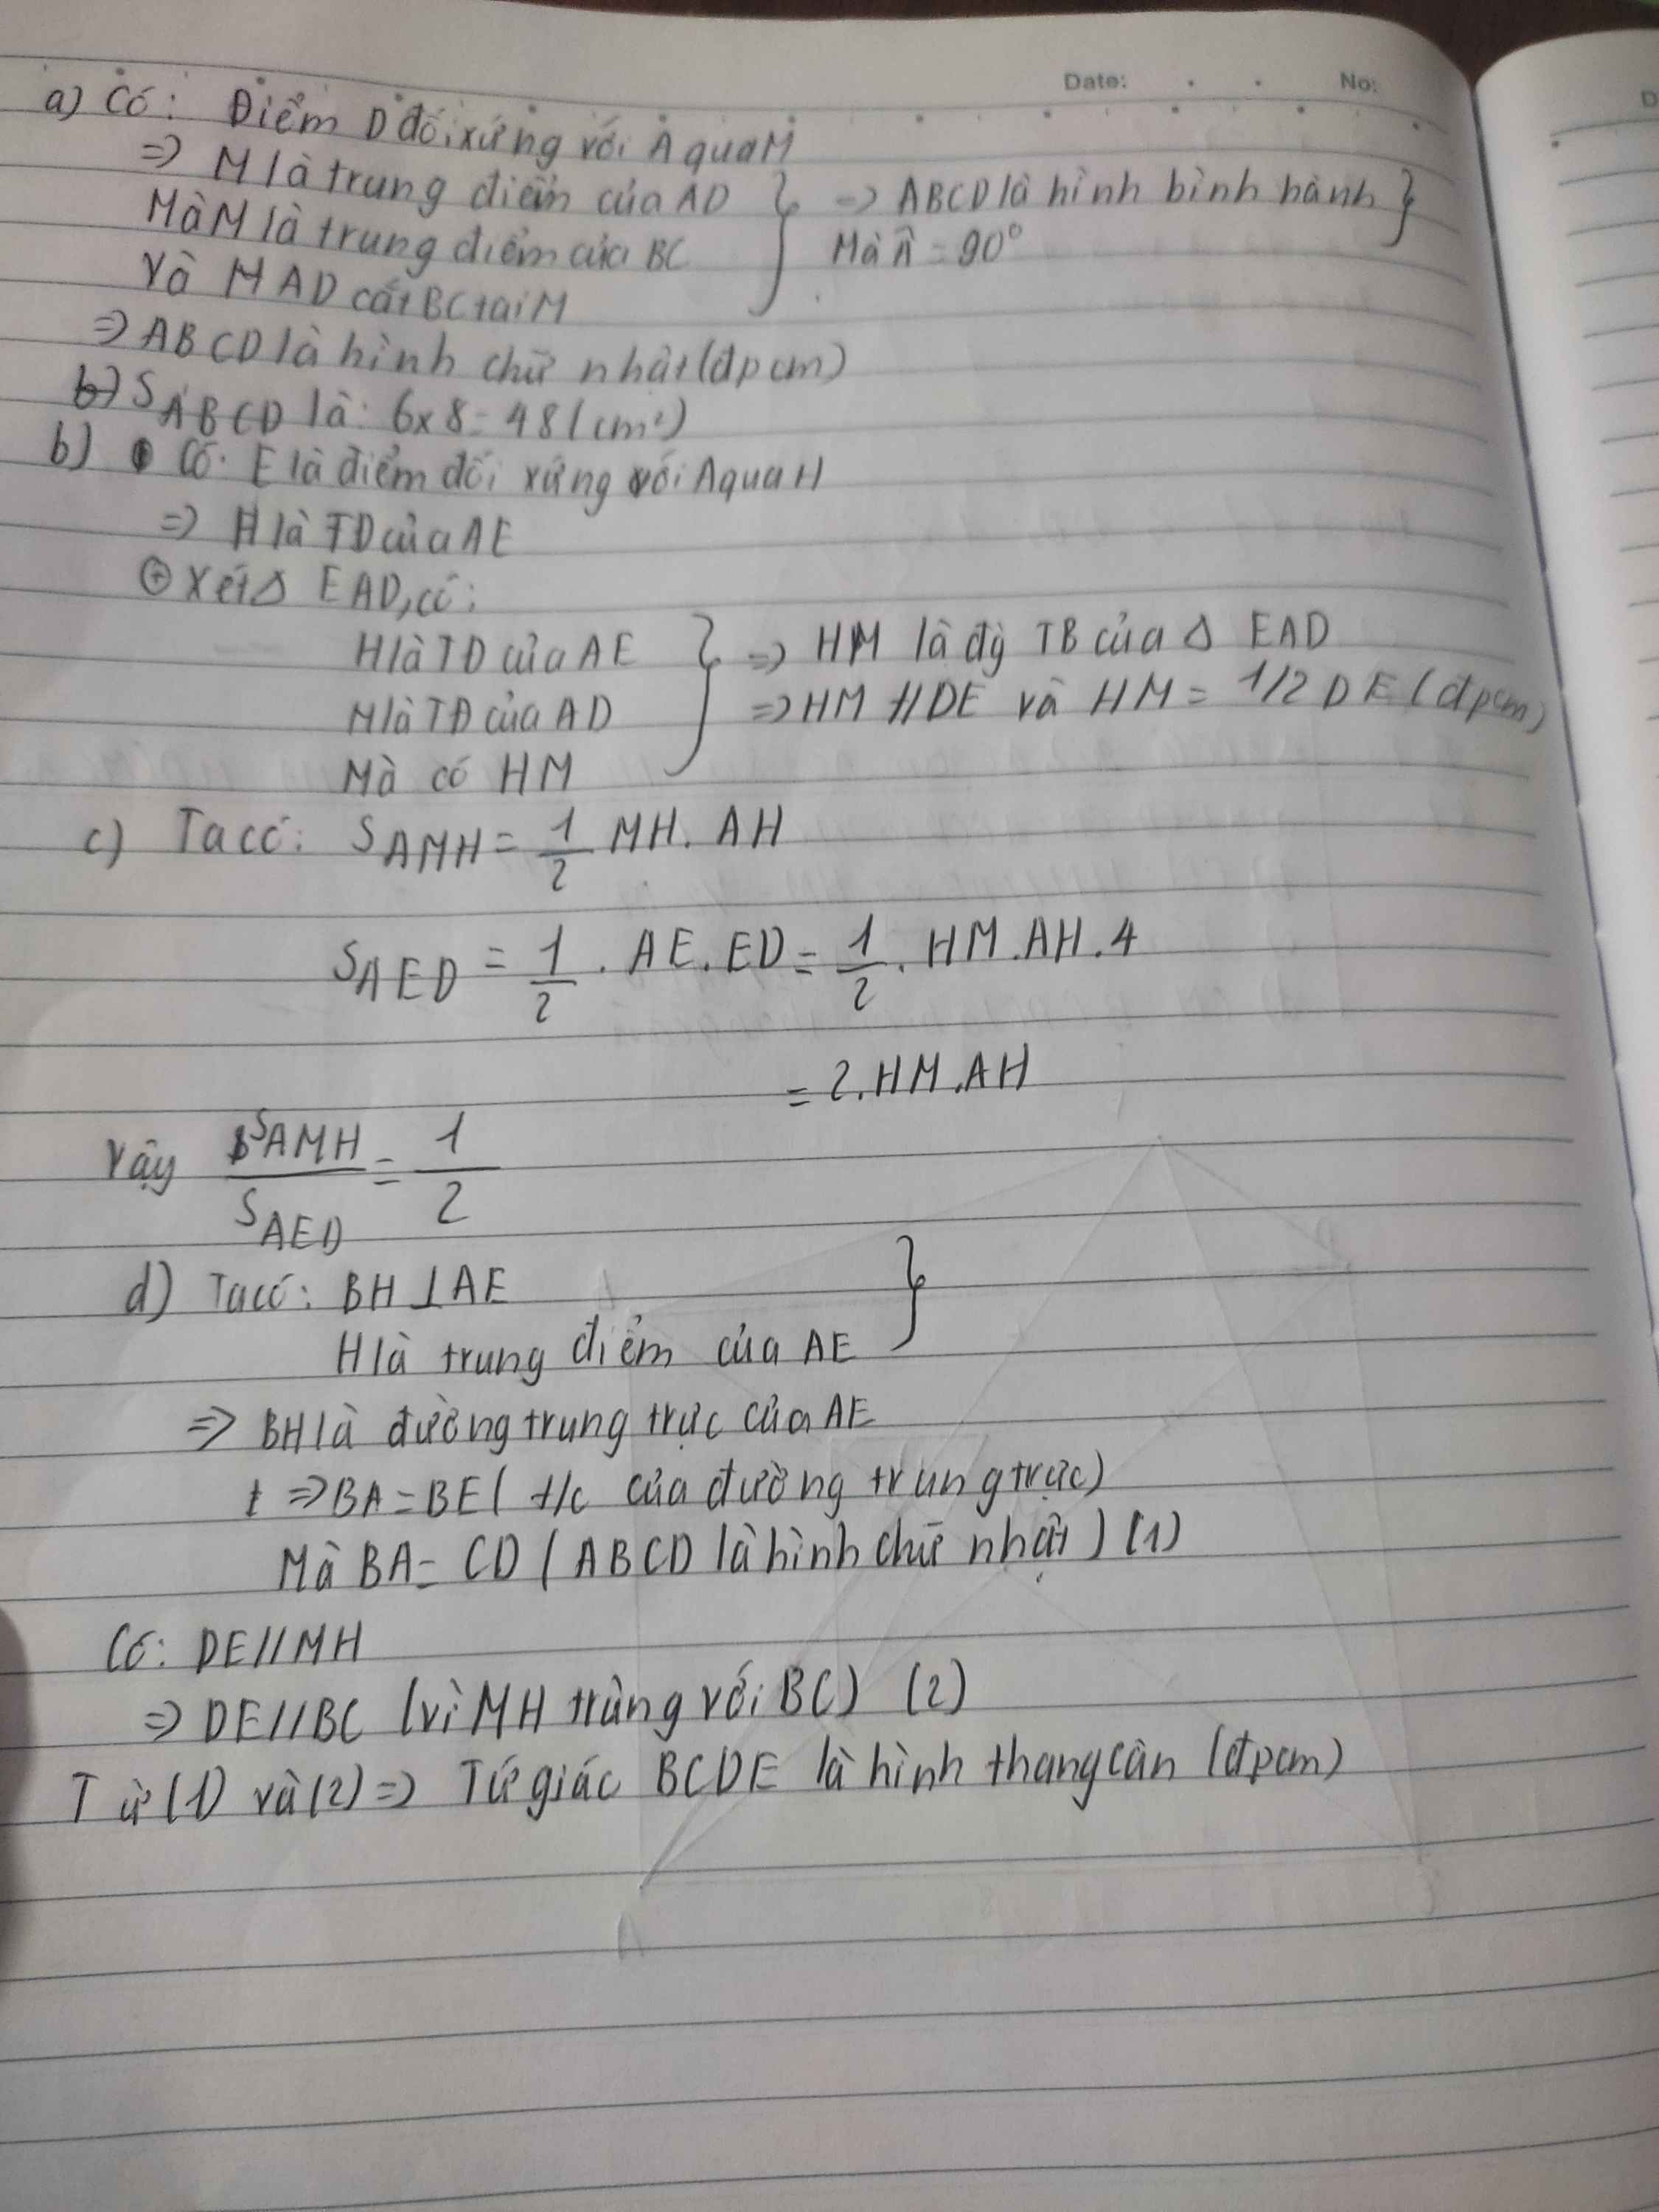 Date: No:
a) Có: Điểm D đối xứng với A qua M
=> M là trung điểm của AD
Mà M là trung điểm của BC
Và M AD cắt BC tại M
=> ABCD là hình bình hành
Mà Â = 90°
=> ABCD là hình chữ nhật (đpcm)
b) S ABCD là: 6x8= 48 (cm²)
b) Có: E là điểm đối xứng với A qua H
=> H là TĐ của AE
⊕ Xét Δ EAD, có:
H là TĐ của AE
M là TĐ của AD
Mà có HM
=> HM là đg TB của Δ EAD
=> HM // DE và HM = 1/2 DE (đpcm)
c) Ta có: S AMH = 1/2 MH. AH
S AED = 1/2 . AE. ED = 1/2 . HM. AH. 4
= 2. HM. AH
Vậy S AMH / S AED = 1/2
d) Ta có: BH ⊥ AE
H là trung điểm của AE
=> BH là đường trung trực của AE
=> BA = BE ( t/c của đường trung trực)
Mà BA = CD ( ABCD là hình chữ nhật ) (1)
Có: DE // MH
=> DE // BC (vì MH trùng với BC) (2)
Từ (1) và (2) => Tứ giác BCDE là hình thang cân (đpcm)